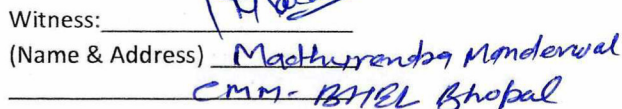 Witness:
(Name & Address) Madhurendra Manderwal
CMM- BHEL Bhopal